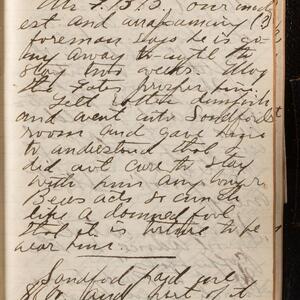 Mr. F. B. S., our mod
est and unassuming (?)
foreman says he is go
ing away to-night to
stay two weeks. May
the Fates prosper him.
Felt rotten
and went into Sandford
room and gave him
to understand that I
did not care to stay
with him any longer.
Beas acts so much
like a damned fool
that it is torture to be
near him.
Sandford paid me
and part of it